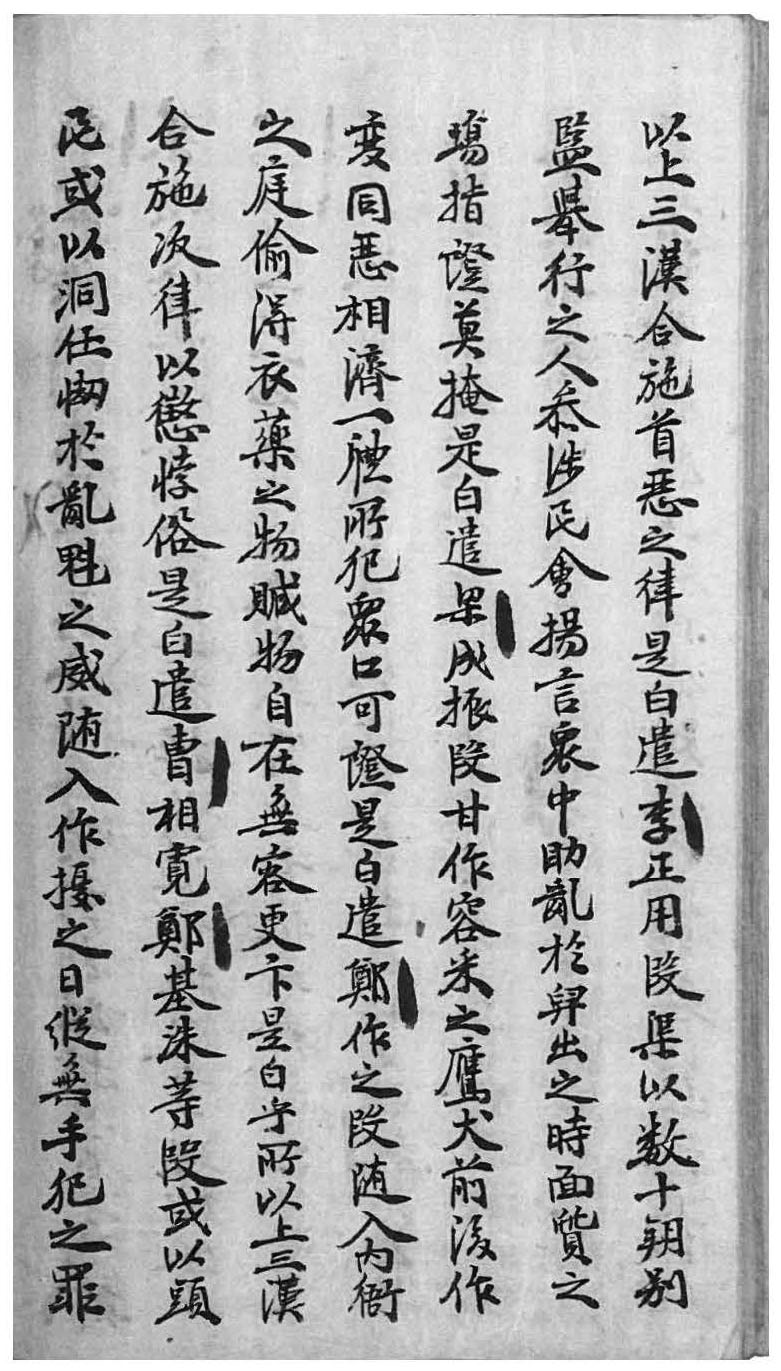 以上三漢合施首惡之律是白遣李正用段渠以数十朔别
監擧行之人叅涉民會揚言衆中助亂於舁出之時面質之
場指證莫掩是白遣梁成振段甘作容来之鷹犬前後作
変同惡相濟一軆所犯衆口可證是白遣鄭作之段随入內衙
之庭偷得衣藥之物贓物自在無容更卞是白乎所以上三漢
合施次律以懲悖俗是白遣曺相寬鄭基洙等段或以頭
民或以洞任㤼於亂魁之威随入作擾之日縱無手犯之罪